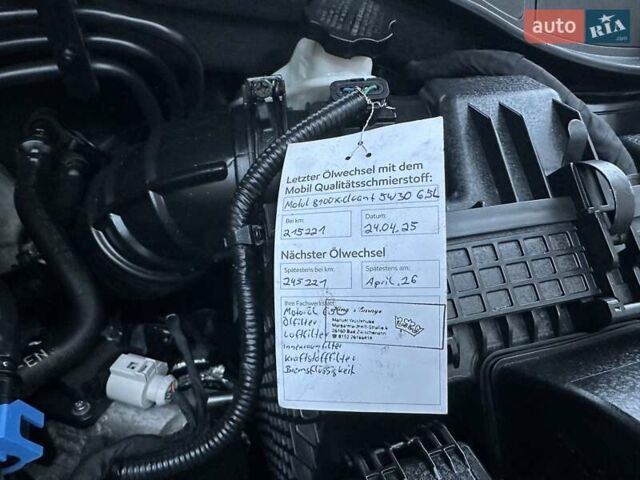 auto RIA
.com
Letzter Ölwechsel mit dem
Mobil Qualitätsschmierstoff:
Motul 8100 x-clean+ 5W30 6.5L
Bei km: Datum:
215221 24.04.25
Nächster Ölwechsel
Spätestens bei km: Spätestens am:
245221 April. 26
Ihre Fachwerkstatt:
Motoröl
Ölfilter
Luftfilter
Innenraumfilter
Kraftstofffilter
Bremsflüssigkeit
Manuel
EN